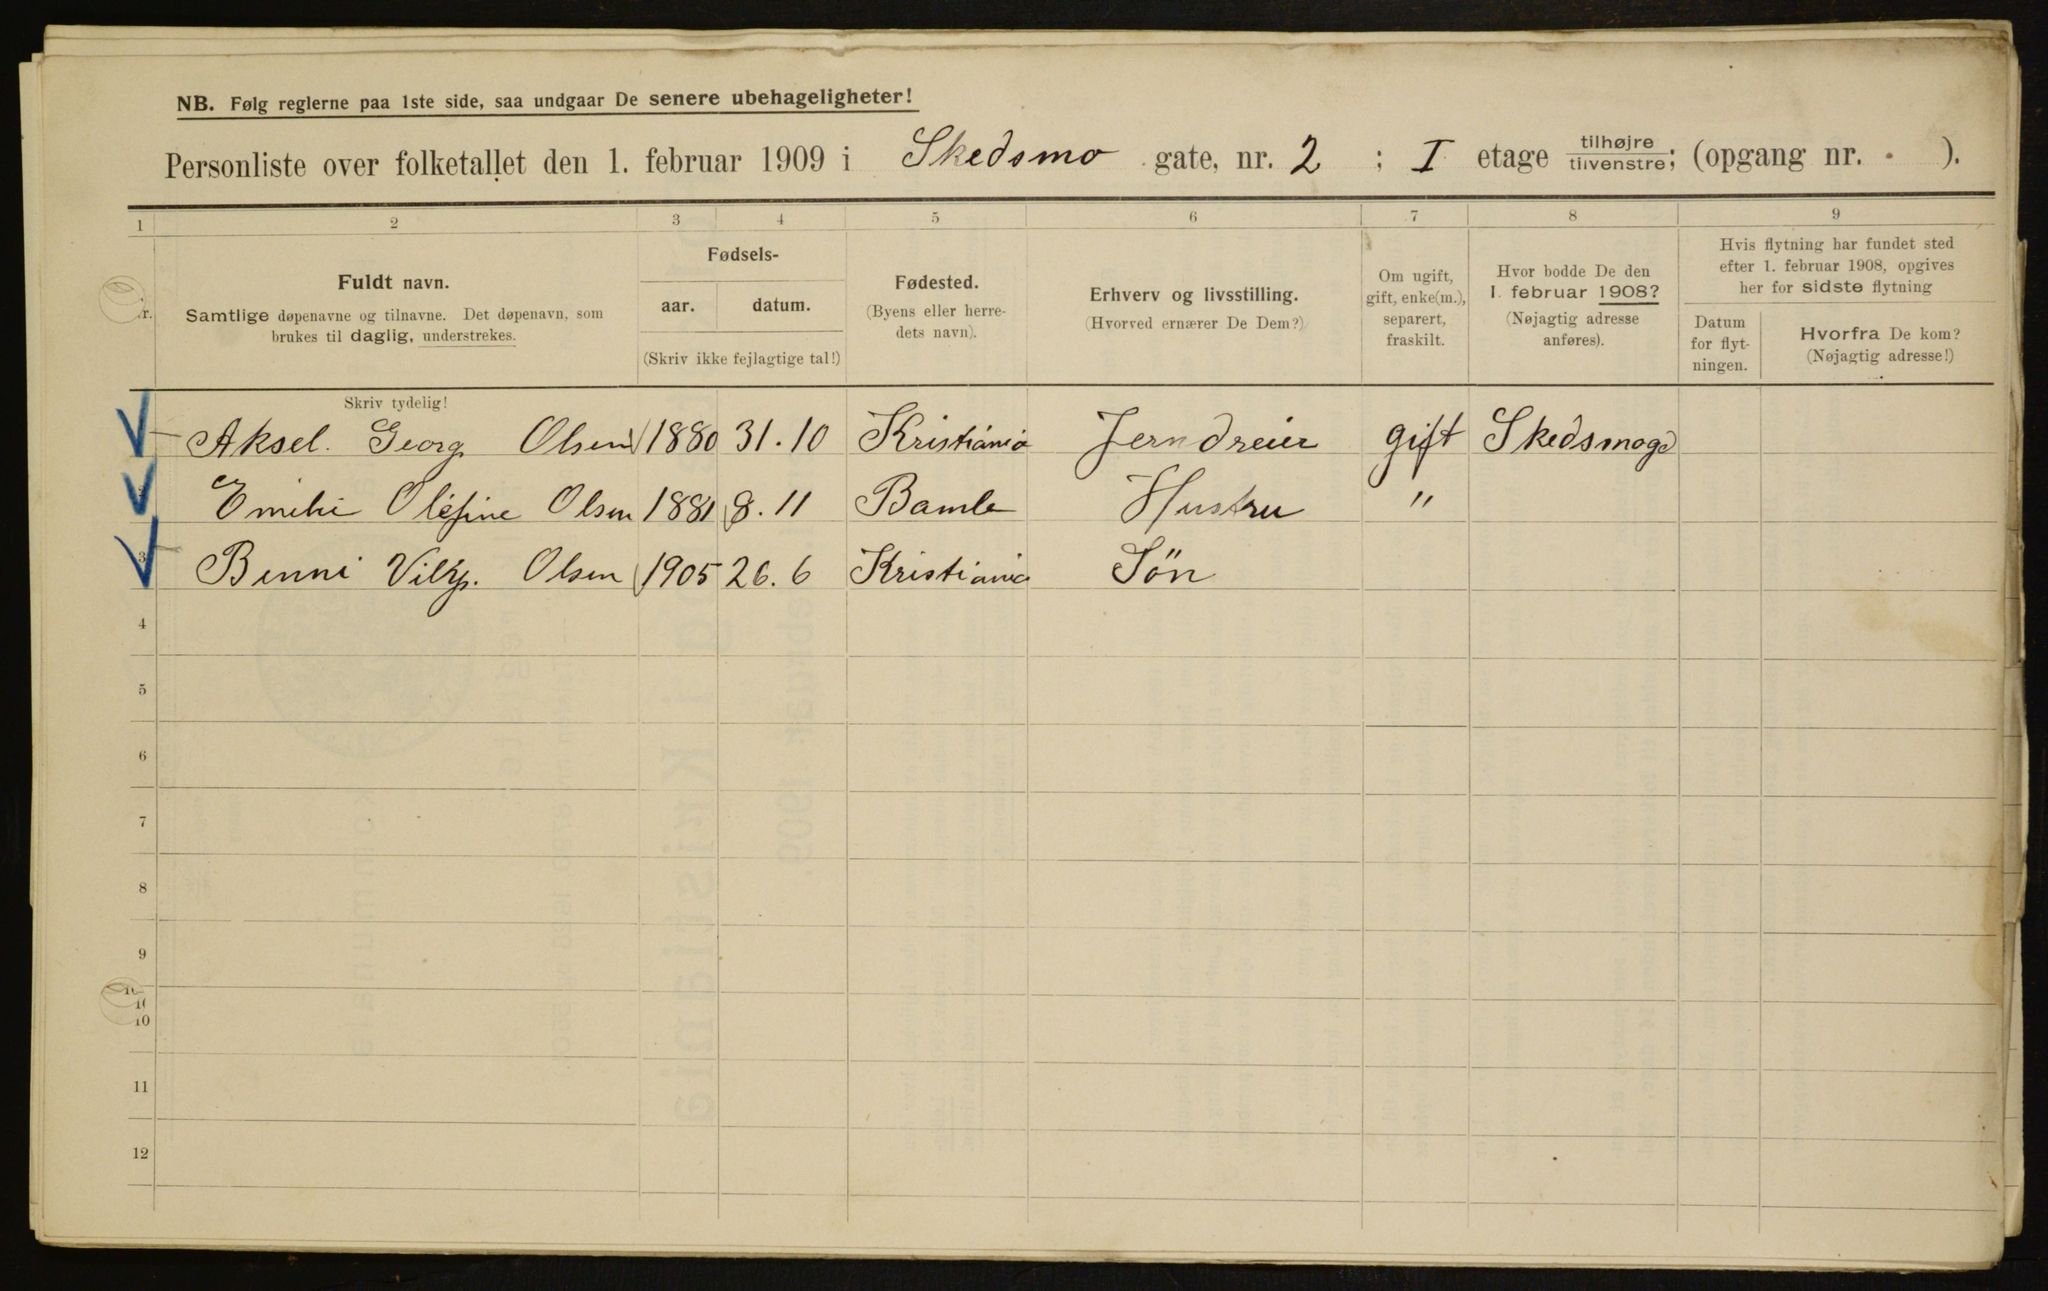 NB. Følg reglerne paa 1ste side, saa undgaar De senere ubehageligheter!
Personliste over folketallet den 1. februar 1909 i Skedsmo gate, nr. 2 ; I etage tilhøjre tilvenstre; (opgang nr. ).
1 2 3 4 5 6 7 8 9
Fuldt navn.
Samtlige døpenavne og tilnavne. Det døpenavn, som
brukes til daglig, understrekes.
Fødsels-
aar. datum.
(Skriv ikke fejlagtige tal!)
Fødested.
(Byens eller herre-
dets navn).
Erhverv og livsstilling.
(Hvorved ernærer De Dem?)
Om ugift,
gift, enke(m.),
separert,
fraskilt.
Hvor bodde De den
1. februar 1908?
(Nøjagtig adresse
anføres).
Hvis flytning har fundet sted
efter 1. februar 1908, opgives
her for sidste flytning
Datum
for flyt-
ningen.
Hvorfra De kom?
(Nøjagtig adresse!)
Skriv tydelig!
Aksel. Georg Olsen 1880 31.10 Kristiania Jerndreier gift Skedsmogd
Emilie Olefine Olsen 1881 8.11 Bamle Hustru "
3 Benni Vilh. Olsen 1905 26.6 Kristiania Søn
4
5
6
7
8
9
10
11
12